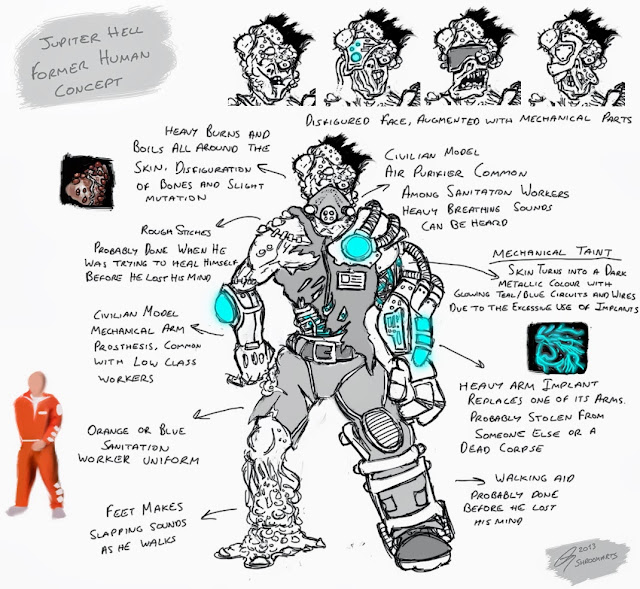 JUPITER HELL
FORMER HUMAN
CONCEPT
DISFIGURED FACE, AUGMENTED WITH MECHANICAL PARTS
HEAVY BURNS AND
BOILS ALL AROUND THE
SKIN. DISFIGURATION
OF BONES AND SLIGHT
MUTATION
CIVILIAN MODEL
AIR PURIFIER COMMON
AMONG SANITATION WORKERS
HEAVY BREATHING SOUNDS
CAN BE HEARD
ROUGH STICHES
PROBABLY DONE WHEN HE
WAS TRYING TO HEAL HIMSELF
BEFORE HE LOST HIS MIND
MECHANICAL TAINT
SKIN TURNS INTO A DARK
METALLIC COLOUR WITH
GLOWING TEAL/BLUE CIRCUITS AND WIRES
DUE TO THE EXCESSIVE USE OF IMPLANTS
CIVILIAN MODEL
MECHANICAL ARM
PROSTHESIS, COMMON
WITH LOW CLASS
WORKERS
HEAVY ARM IMPLANT
REPLACES ONE OF ITS ARMS.
PROBABLY STOLEN FROM
SOMEONE ELSE OR A
DEAD CORPSE
ORANGE OR BLUE
SANITATION
WORKER UNIFORM
WALKING AID
PROBABLY DONE
BEFORE HE LOST
HIS MIND
FEET MAKES
SLAPPING SOUNDS
AS HE WALKS
2013
SHROOMARTS